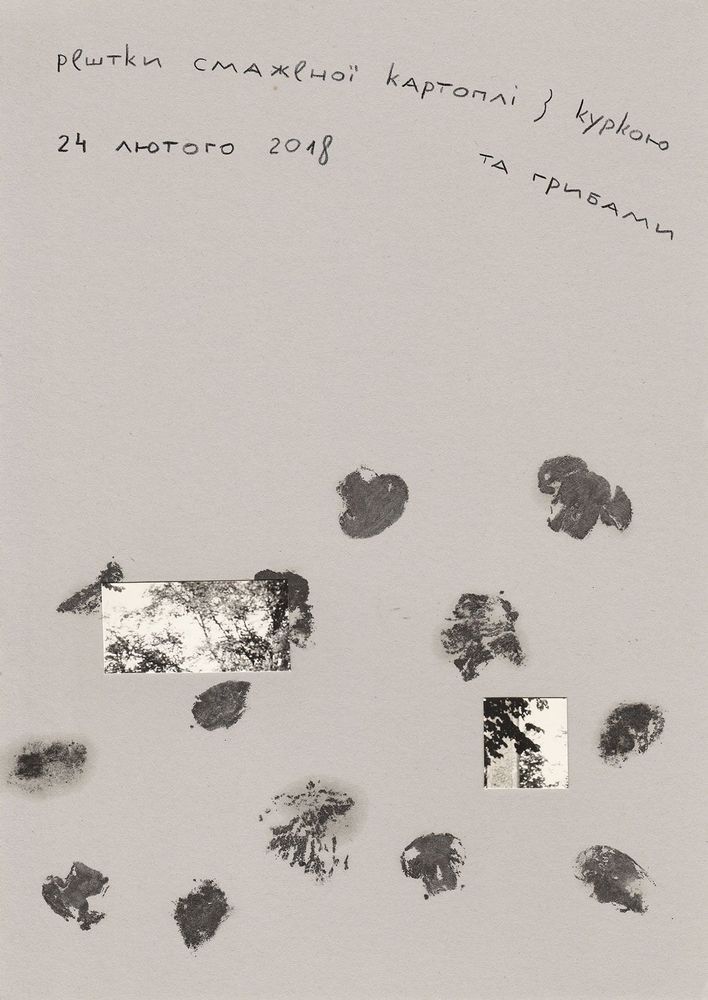 рештки смаженої картоплі з куркою
та грибами
24 лютого 2018